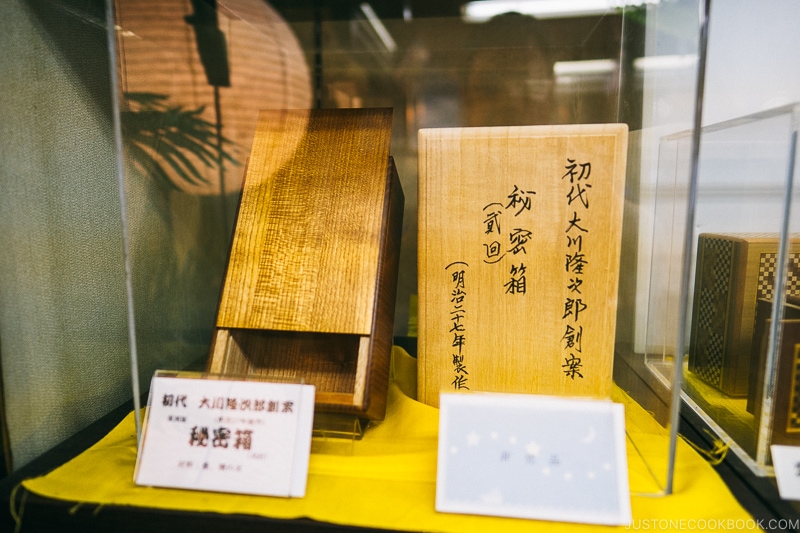 初代大川隆次郎創案
秘密箱
(貳回)
(明治二十七年製作
初代 大川隆次郎創案
秘密箱
JUSTONECOOKBOOK.COM